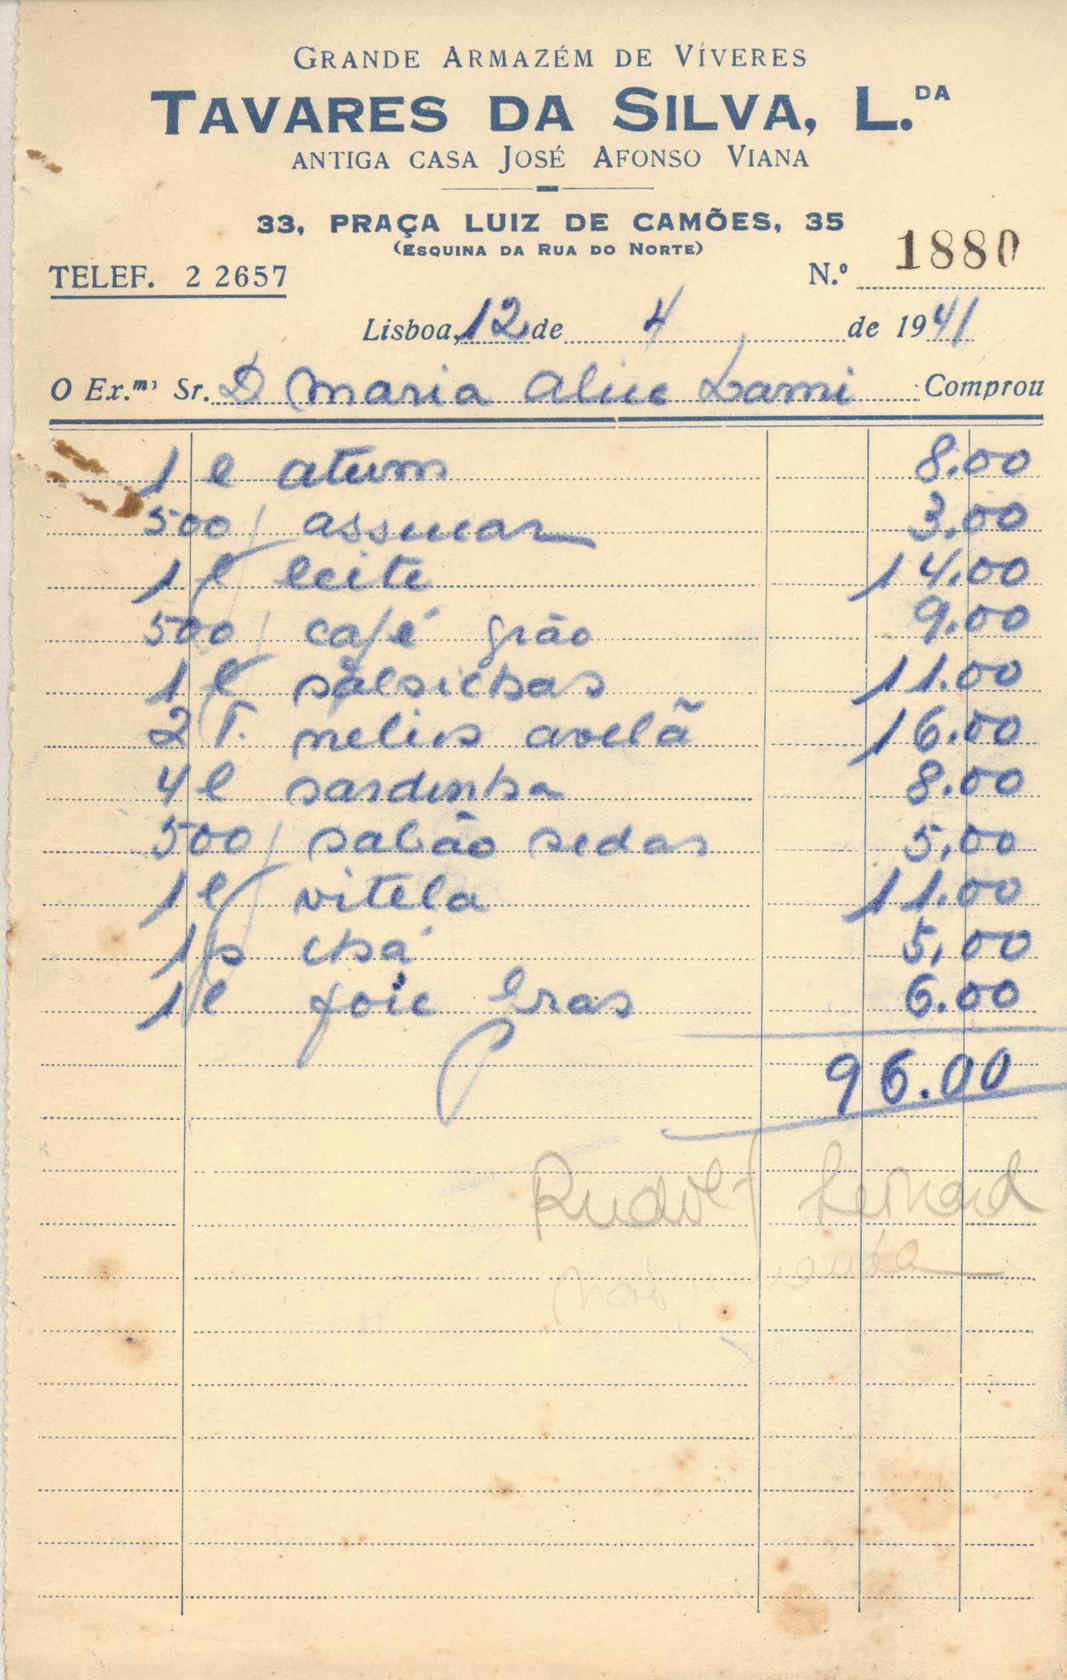 GRANDE ARMAZÉM DE VÍVERES
TAVARES DA SILVA, L.DA
ANTIGA CASA JOSÉ AFONSO VIANA
33, PRAÇA LUIZ DE CAMÕES, 35
(ESQUINA DA RUA DO NORTE)
TELEF. 2 2657 N.º 1880
Lisboa, 12 de 4 de 1941
O Ex.mo Sr. D Maria Alice Lami Comprou
1 l atum 8.00
500/ assucar 3.00
1 l leite 14.00
500/ café grão 9.00
1 l salsichas 11.00
2 T. avelã 16.00
4 l sardinha 8.00
500/ sabão sedas 5,00
1 l vitela 11.00
1 p chá 5,00
1 l foie Gras 6.00
96.00
Rudolf